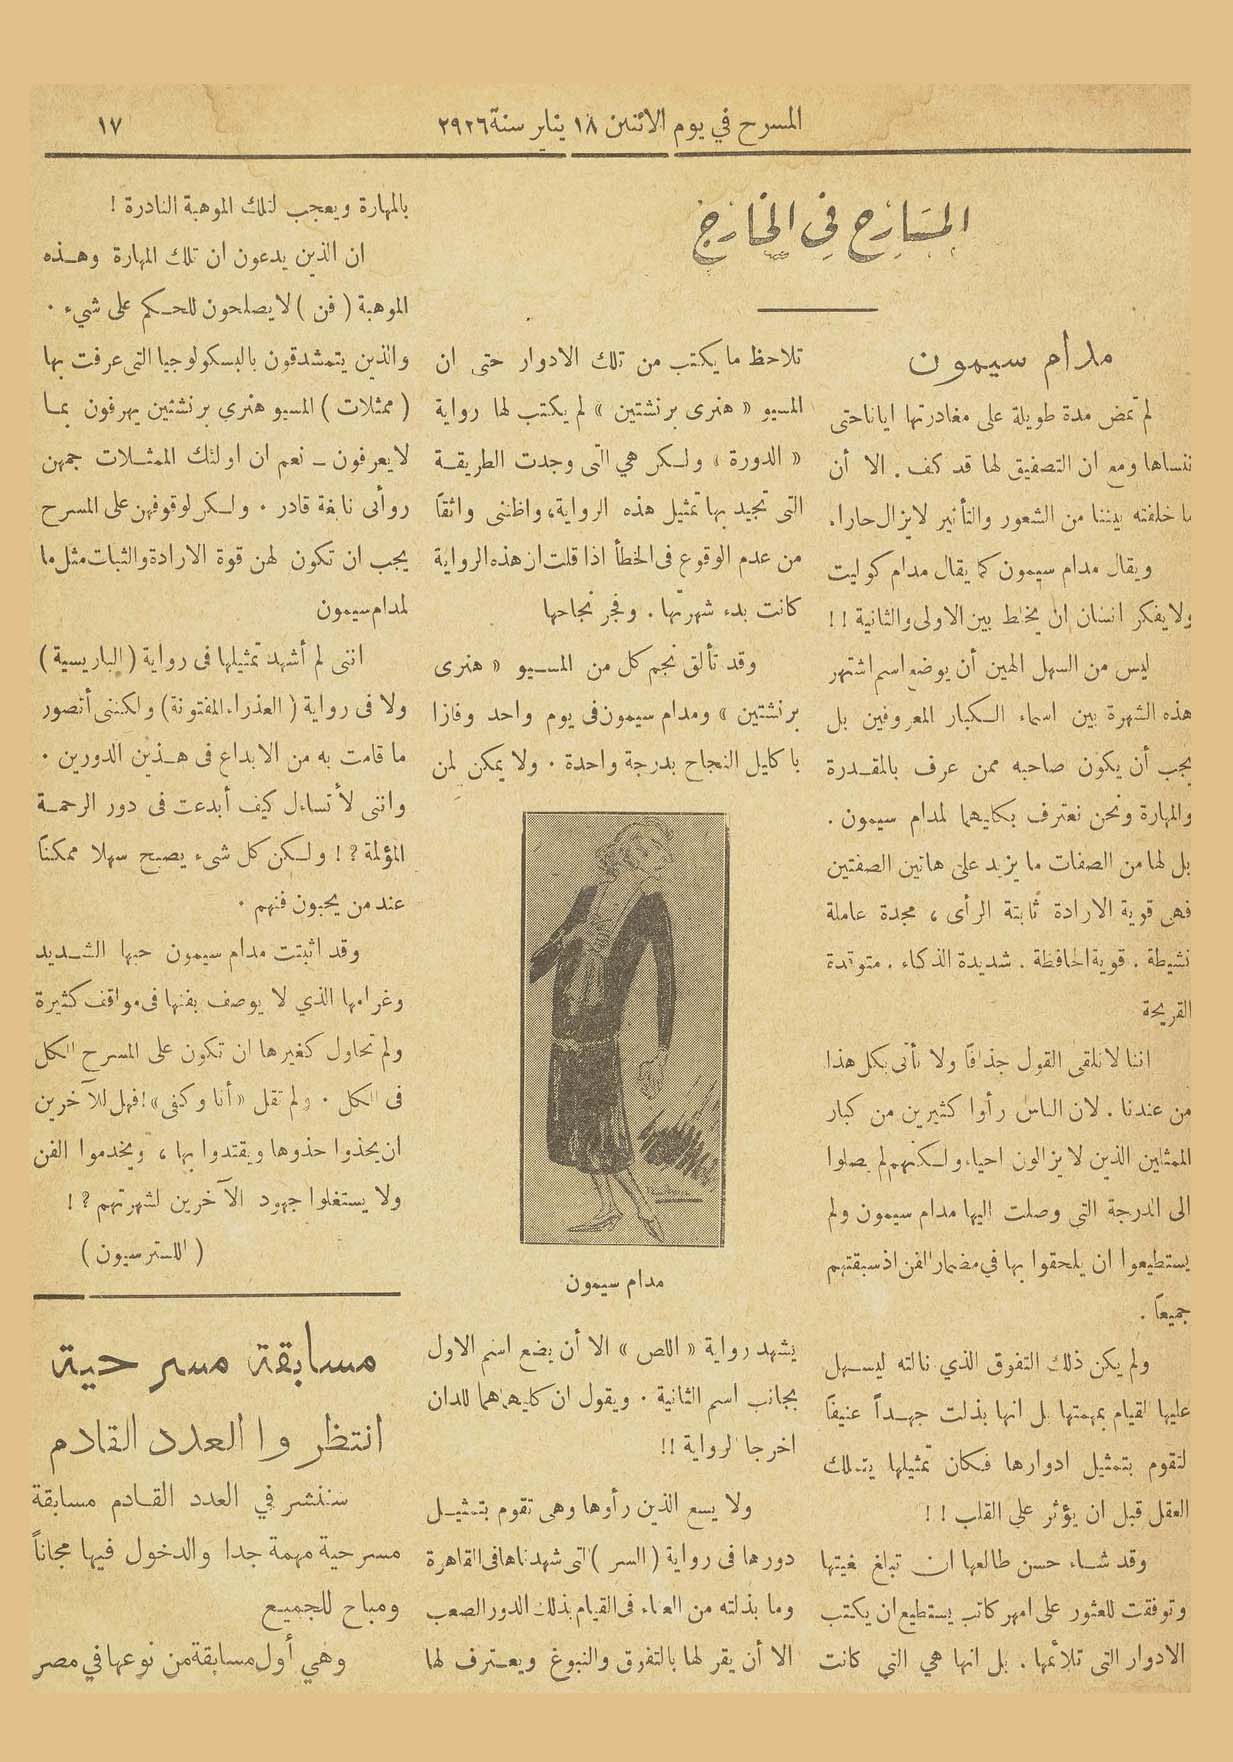 المسرح في يوم الاثنين ١٨ يناير سنة ٢٩٢٦
١٧
المسارح في الخارج
مدام سيمون
لم تمض مدة طويلة على مغادرتها ايانا حتى
ننساها ومع ان التصفيق لها قد كف . الا أن
ما خلفته بيننا من الشعور والتأثير لا يزال حارا.
ويقال مدام سيمون كما يقال مدام كوليت
ولا يفكر انسان ان يخلط بين الاولى والثانية ! !
ليس من السهل الهين أن يوضع اسم اشتهر
هذه الشهرة بين اسماء الكبار المعروفين بل
يجب أن يكون صاحبه ممن عرف بالمقدرة
والمهارة ونحن نعترف بكليهما لمدام سيمون .
بل لها من الصفات ما يزيد على هاتين الصفتين
فهى قوية الارادة ثابتة الرأى ، مجدة عاملة
نشيطة . قوية الحافظة . شديدة الذكاء . متوقدة
القريحة
اننا لا نلقى القول جذافا ولا نأتى بكل هذا
من عندنا . لان الناس رأوا كثيرين من كبار
الممثلين الذين لا يزالون احياء ولكنهم لم يصلوا
الى الدرجة التى وصلت اليها مدام سيمون ولم
يستطيعوا ان يلحقوا بها في مضمار الفن اذ سبقتهم
جميعاً .
ولم يكن ذلك التفوق الذي نالته ليسهل
عليها القيام بمهمتها بل انها بذلت جهداً عنيفاً
لتقوم بتمثيل ادوارها فكان تمثيلها يتملك
العقل قبل ان يؤثر علي القلب ! !
وقد شاء حسن طالعها ان تبلغ غيتها
وتوفقت للعثور على امهر كاتب يستطيع ان يكتب
الادوار التى تلائمها . بل انها هي التي كانت
تلاحظ ما يكتب من تلك الادوار حتى ان
المسيو « هنرى برنشتين » لم يكتب لها رواية
« الدورة » ولكن هي التى وجدت الطريقة
التى تجيد بها تمثيل هذه الرواية، واظننى واثقاً
من عدم الوقوع فى الخطأ اذا قلت ان هذه الرواية
كانت بدء شهرتها . وفجر نجاحها
وقد تألق نجم كل من المسيو « هنرى
برنشتين » ومدام سيمون فى يوم واحد وفازا
باكايل النجاح بدرجة واحدة . ولا يمكن لمن
مدام سيمون
يشهد رواية « اللص » الا أن يضع اسم الاول
بجانب اسم الثانية . ويقول ان كليهما هما اللذان
اخرجا الرواية !!
ولا يسع الذين رأوها وهى تقوم بتمثيل
دورها فى رواية ( السر ) التى شهدناها فى القاهرة
وما بذلته من العناء فى القيام بذلك الدور الصعب
الا أن يقر لها بالتفوق والنبوغ ويعترف لها
بالمهارة ويعجب لتلك الموهبة النادرة !
ان الذين يدعون ان تلك المهارة وهذه
الموهبة ( فن ) لا يصلحون للحكم على شيء .
والذين يتمشدقون بالبسكولوجيا التى عرفت بها
( ممثلات ) المسيو هنرى برنشتين يهرفون بما
لا يعرفون ـ نعم ان اولئك الممثلات جمهن
روأنى نابغة قادر . ولكن لوقوفهن على المسرح
يجب ان تكون لهن قوة الارادة والثبات مثل ما
لمدام سيمون
اننى لم أشهد تمثيلها فى رواية ( الباريسية )
ولا فى رواية ( العذراء المفتونة ) ولكننى أتصور
ما قامت به من الابداع فى هذين الدورين .
واننى لأتساءل كيف أبدعت فى دور الرحمة
المؤلمة ? ! ولكن كل شىء يصبح سهلا ممكناً
عند من يحبون فنهم .
وقد اثبتت مدام سيمون حبها الشديد
وغرامها الذي لا يوصف بفنها فى مواقف كثيرة
ولم تحاول كغيرها ان تكون على المسرح الكل
فى الكل . ولم تقل «أنا وكفى»! فهل للآخرين
ان يحذوا حذوها ويقتدوا بها ، ويخدموا الفن
ولا يستغلوا جهود الآخرين لشهرتهم ? !
( اللسترسيون )
مسابقة مسرحية
انتظروا العدد القادم
سننشر في العدد القادم مسابقة
مسرحية مهمة جدا والدخول فيها مجاناً
ومباح للجميع
وهي أول مسابقة من نوعها في مصر